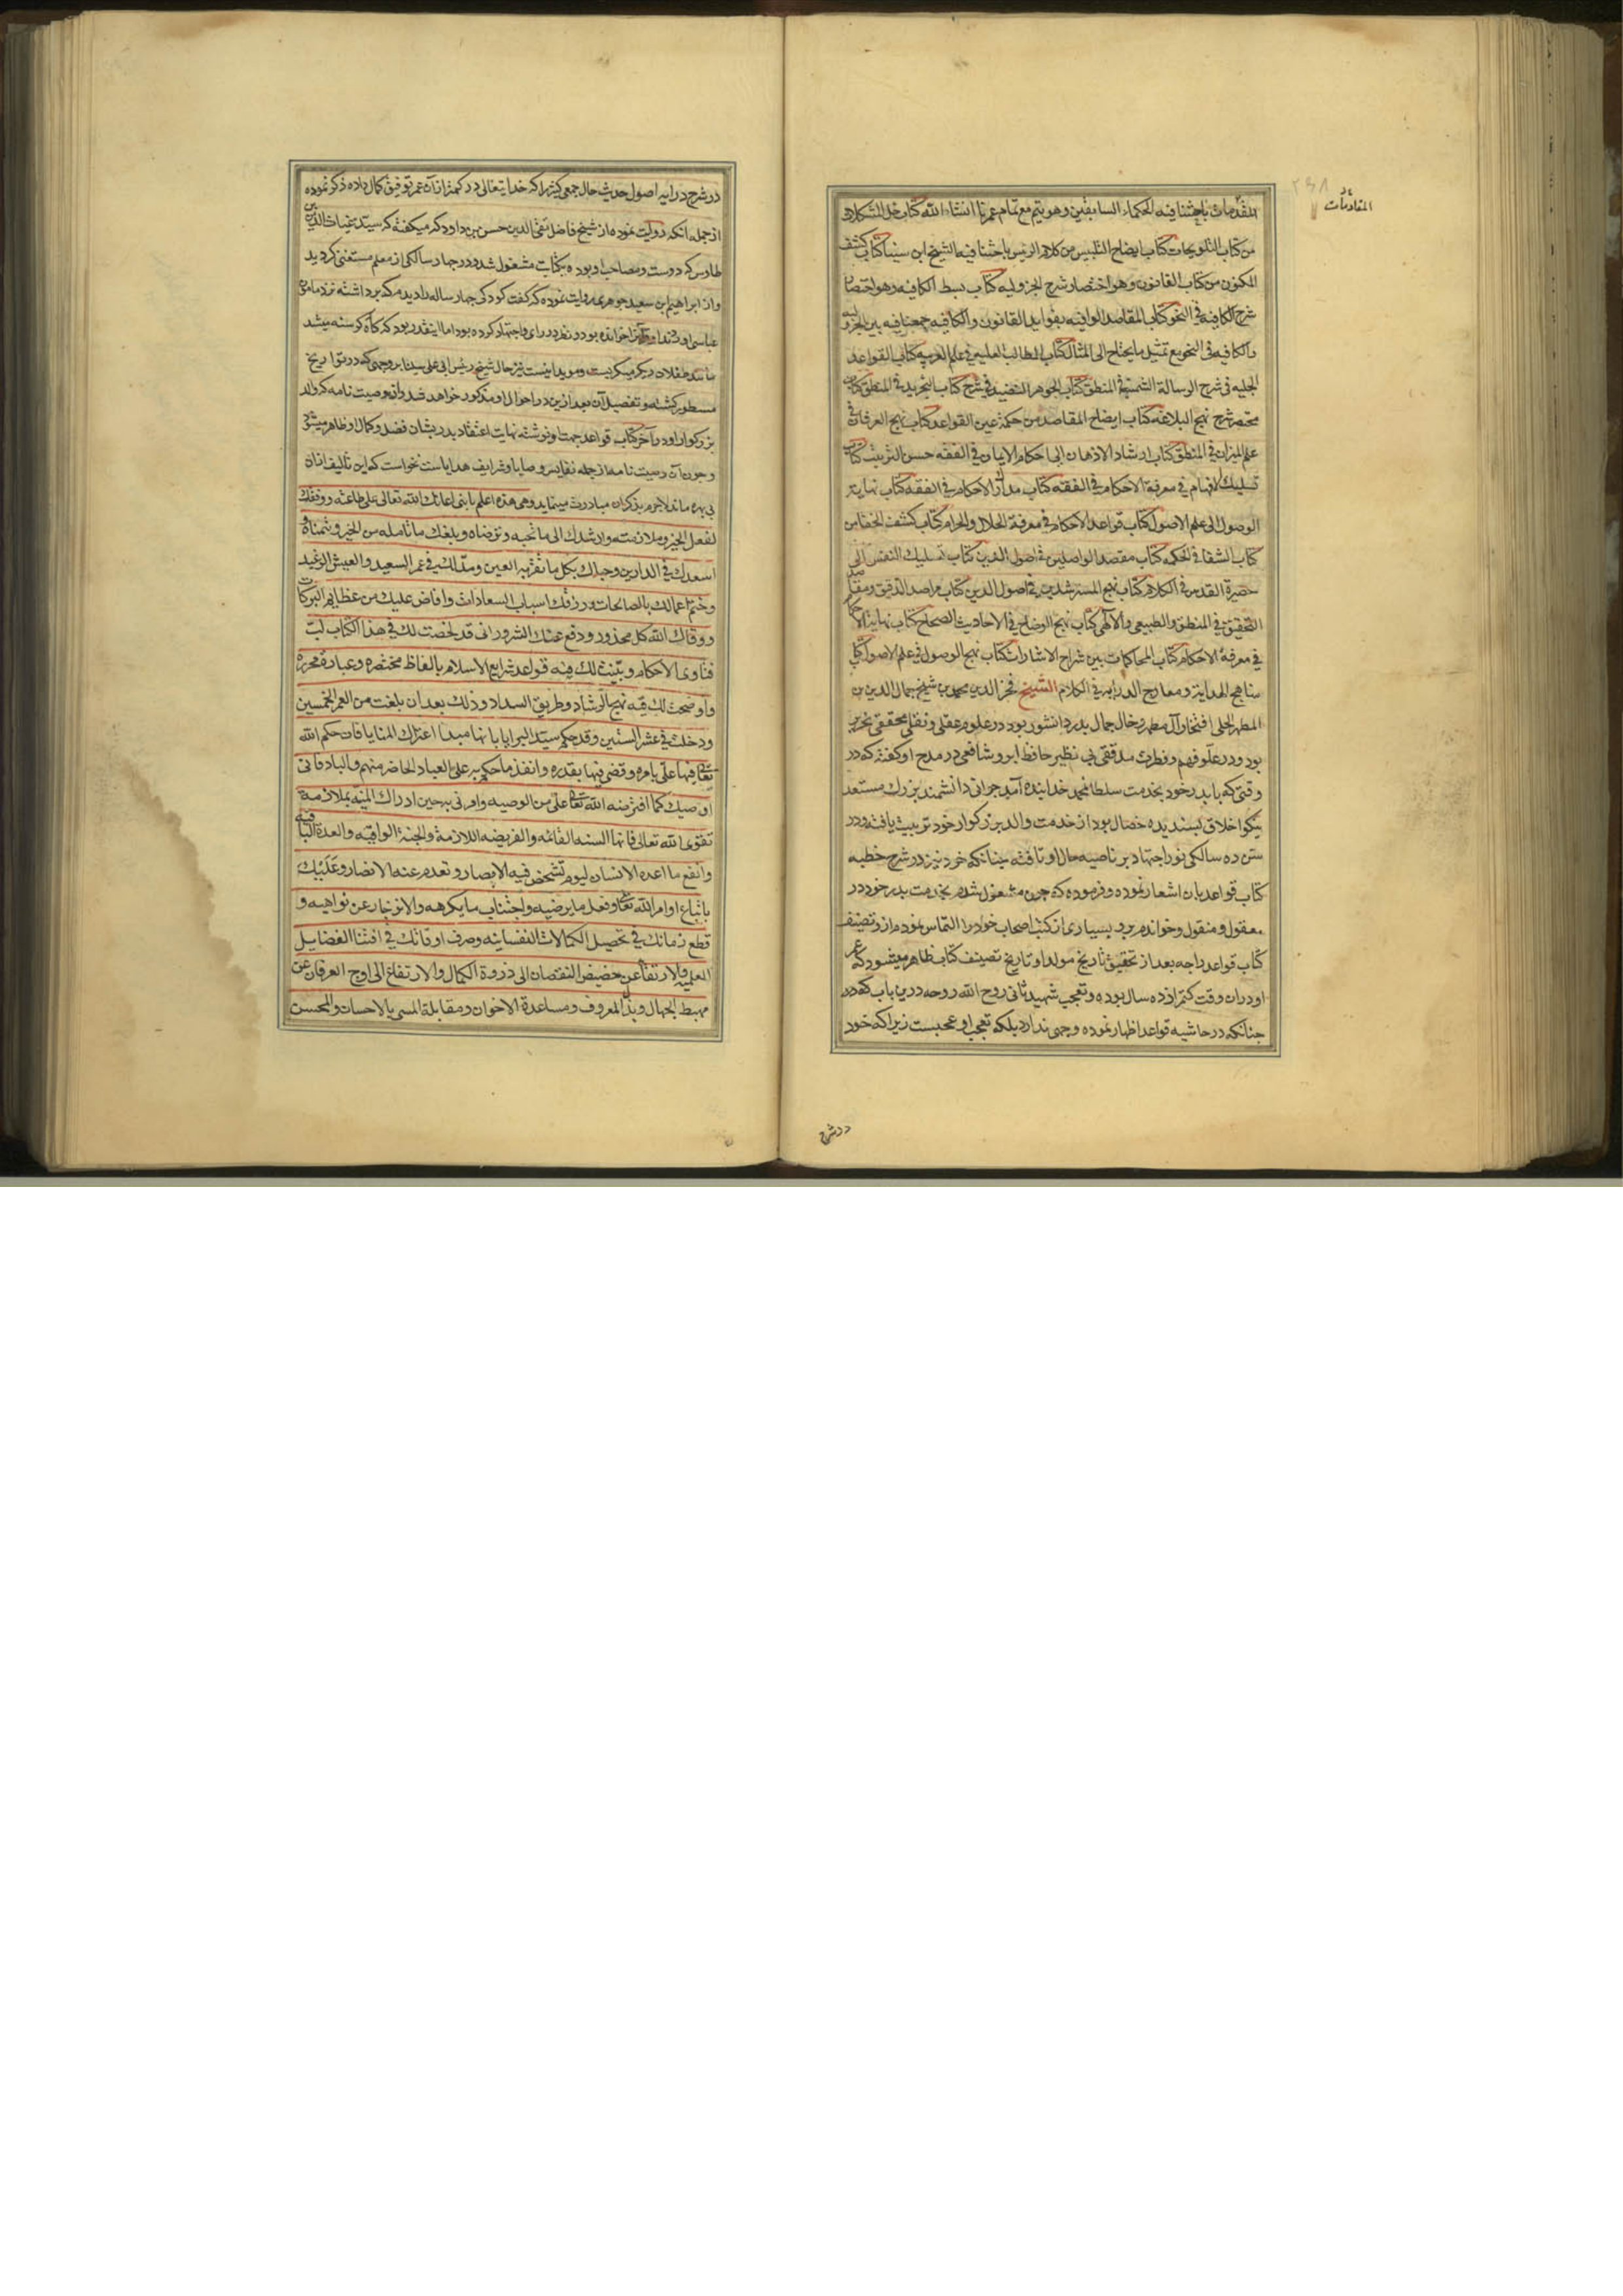 المقاومات
المقدمات باحثنا فيه الحكماء السابقين وهو يتم مع تمام عمرنا انشاء الله كتاب حل المشكلات
من كتاب التلويحات كتاب ايضاح التلبيس من كلام الرئيس باحثنا فيه الشيخ ابن سينا كتاب كشف
المكنون من كتاب القانون وهو اختصار شرح الجزوليه كتاب بسط الكافيه وهو اختصار
شرح الكافيه في النحو كتاب المقاصد الوافيه بفوايد القانون والكافيه جمعنا فيه بين الجزوليه
والكافيه في النحو مع تمثيل ما يحتاج الى المثال كتاب المطالب العليه في علم العربيه كتاب القواعد
الجليه في شرح الرسالة الشمسيه في المنطق كتاب الجوهر النضيد في شرح كتاب التجريد في المنطق كتاب
مختصر شرح نهج البلاغه كتاب ايضاح المقاصد من حكمة عين القواعد كتاب نهج العرفان في
علم الميزان في المنطق كتاب ارشاد الاذهان الى احكام الايمان في الفقه حسن الترتيب كتاب
تسليك الافهام في معرفة الاحكام في الفقه كتاب مدارك الاحكام في الفقه كتاب نهاية
الوصول الى علم الاصول كتاب قواعد الاحكام في معرفة الحلال والحرام كتاب كشف الخفا من
كتاب الشفا في الحكمه كتاب مقصد الواصلين في اصول الدين كتاب تسليك النفس الى
حضيرة القدس في الكلام كتاب نهج المسترشدين في اصول الدين كتاب مراصد التدقيق ومقاصد
التحقيق في المنطق والطبيعي والالهي كتاب نهج الوضاح في الاحاديث الصحاح كتاب نهاية الاحكام
في معرفة الاحكام كتاب المحاكمات بين شراح الاشارات كتاب نهج الوصول في علم الاصول كتاب
مناهج الهداية ومعارج الدرايه في الكلام الشيخ فخر الدين محمد بن شيخ جمال الدين بن
المطهر الحلي افتخار آل مطهر وخال جمال پدر دانشور بود در علوم عقلي ونقلي محققى نحرير
بود ودر علو فهم وفطرت مدققى بى نظير حافظ ابرو شافعى در مدح او كفته كه در
وقتى كه با پدر خود بخدمت سلطان محمد خدابنده آمد جوانى دانشمند بزرك مستعد
نيكو اخلاق پسنديده خصال بود از خدمت والد بزركوار خود تربيت يافته ودر
سن ده سالكى نور اجتهاد بر ناصيه حال او تافته چنانكه خود نيز در شرح خطبه
كتاب قواعد بان اشعار نموده وفرموده كه چون مشغول شدم بخدمت پدر خود در
معقول ومنقول وخواندم برو بسيارى از كتب اصحاب خود را التماس نمودم ازو تصنيف
كتاب قواعد را چه بعد از تحقيق تاريخ مولد او تاريخ تصنيف كتاب ظاهر ميشود كه عمر
او دران وقت كمتر از ده سال بوده وتعجب شهيد ثانى روح الله روحه درين باب كه در
چنانكه در حاشيه قواعد اظهار نموده وجهى ندارد بلكه تعجب او عجبست زيرا كه خود
در شرح
در شرح درايه اصول حديث حال جمعى كثير را كه خدايتعالى در كمتر ازان عمر توفيق كمال داده ذكر نموده
از جمله آنكه روايت نموده از شيخ فاضل تقي الدين حسن بن داود كه ميكفته كه سيد غياث الدين بن
طاوس كه دوست ومصاحب او بوده بكتابت مشغول شد ودر چهار سالكى از معلم مستغنى كرديد
واز ابراهيم بن سعيد جوهرى روايت نموده كه كفت كودكى چهار ساله را ديدم كه برداشته نزد مامون
عباسى اوردند او قرآن خوانده بود ونظر در راى واجتهاد كرده بود اما اينقدر بود كه كاه كرسنه ميشد
مانند طفلان ديكر ميكريست ومويد اينست نيز حال شيخ رئيس ابى على سينا بر وجهى كه در تواريخ
مسطور كشته وتفصيل آن بعد ازين در احوال او مذكور خواهد شد واز وصيت نامه كه والد
بزركوار او در آخر كتاب قواعد جهت او نوشته نهايت اعتقاد پدر بشان فضل وكمال او ظاهر ميشود
وچون آن وصيت نامه از جمله نفايس وصايا وشرايف هداياست نخواست كه اين تاليف ازان
بى بهره ماند لاجرم بذكر آن مبادرت مينمايد وهى هذه اعلم يا بني اعانك الله تعالى على طاعته ووفقك
لفعل الخير وملازمته وارشدك الى ما تحبه وترضاه وبلغك ما تامله من الخير وتتمناه و
اسعدك في الدارين وحباك بكل ما تقر به العين ومد لك في عمر السعيد والعيش الرغيد
وختم اعمالك بالصالحات ورزقك اسباب السعادات وافاض عليك من عظايم البركات
ووقاك الله كل محذور ودفع عنك الشرور اني قد لخصت لك في هذا الكتاب لب
فتاوى الاحكام وبينت لك فيه قواعد شرايع الاسلام بالفاظ مختصره وعبارة محرره
واوضحت لك فيه نهج الرشاد وطريق السداد وذلك بعد ان بلغت من العمر الخمسين
ودخلت في عشر الستين وقد حكم سيد البرايا بانها مبدا اعتراك المنايا فان حكم الله
تعالى فيها علي بامره وقضى فيها بقدره وانفذ ما حكم به على العباد الحاضر منهم والباد فاني
اوصيك كما افترضه الله تعالى علي من الوصيه وامرني به حين ادراك المنيه بملازمة
تقوى الله تعالى فانها السنه القائمه والفريضه اللازمة والجنة الواقيه والعدة الباقيه
وانفع ما اعده الانسان ليوم تشخص فيه الابصار وتعدم عنه الانصار وعليك
باتباع اوامر الله تعالى وفعل ما يرضيه واجتناب ما يكرهه والانزجار عن نواهيه و
قطع زمانك في تحصيل الكمالات النفسانيه وصرف اوقاتك في اقتنا الفضايل
العلميه والارتقا عن حضيض النقصان الى ذروة الكمال والارتفاع الى اوج العرفان عن
مهبط الجهال وبذل المعروف ومساعدة الاخوان ومقابلة المسي بالاحسان والمحسن